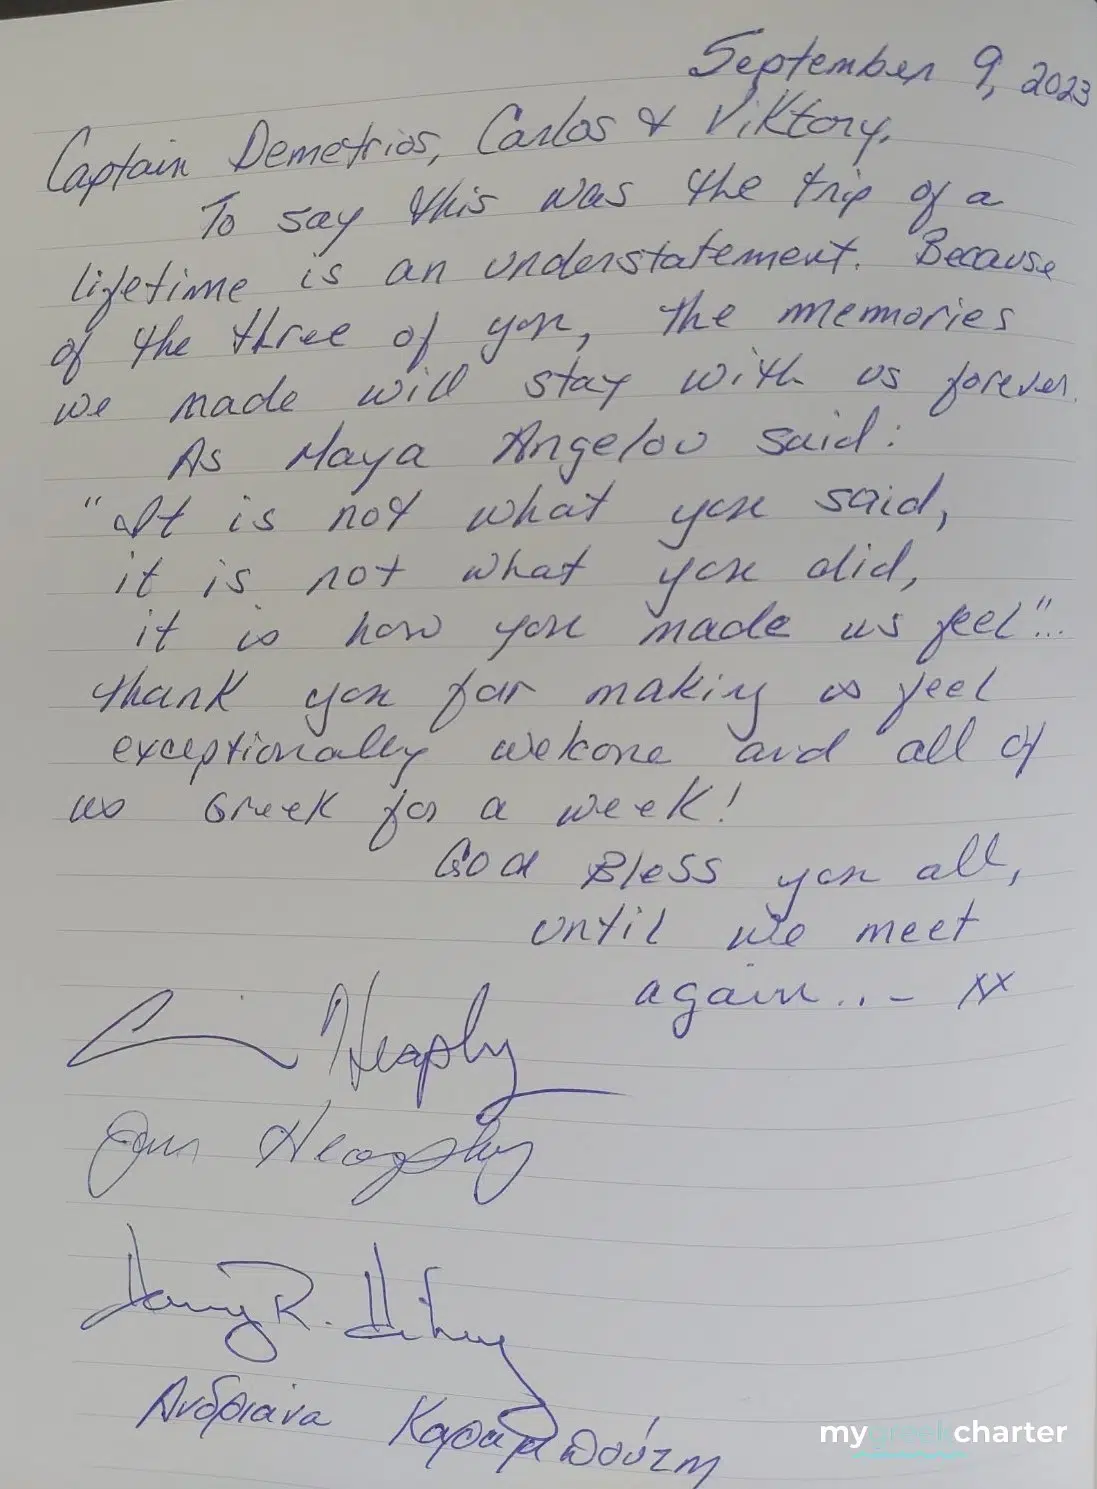 September 9, 2023
Captain Demetrios, Carlos & Viktory,
To say this was the trip of a
lifetime is an understatement. Because
of the three of you, the memories
we made will stay with us forever.
As Maya Angelou said:
"It is not what you said,
it is not what you did,
it is how you made us feel"...
thank you for making us feel
exceptionally welcome and all of
us Greek for a week!
God Bless you all,
until we meet
again..- xx
Heaphy
Heaphy
R.
Ανδριάνα Καραμπούζη
mygreekcharter